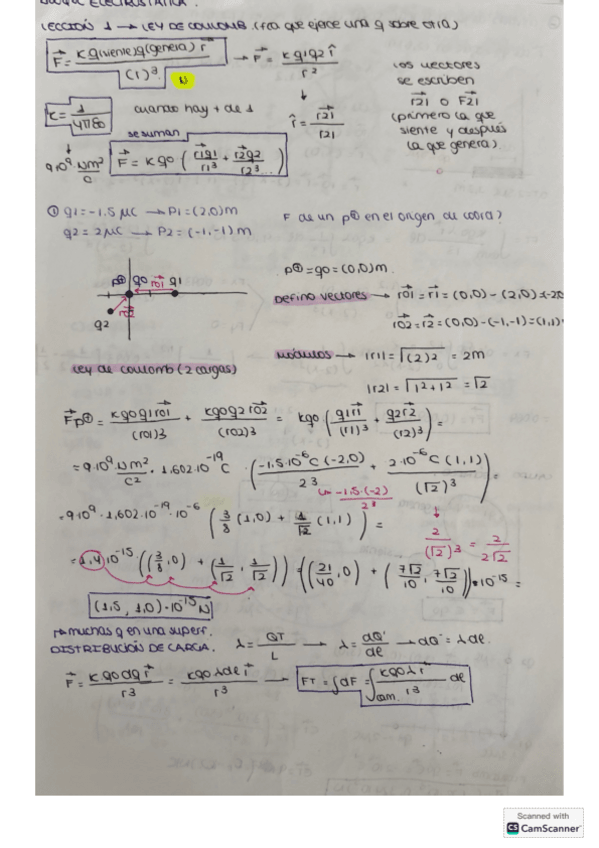 BLOQUE ELECTROSTÁTICA.
LECCIÓN 1 → LEY DE COULOMB (fza que ejerce una q sobre otra)
F⃗ = K q(siente) q(genera) r⃗ / (r)³ → F⃗ = K q1 q2 r̂ / r²
N
los vectores
se escriben
r⃗21 o F⃗21
(primero la que
siente y después
la que genera).
r̂ = r⃗21 / r21
K = 1 / 4πε0
cuando hay + de 1
se suman
9·10⁹ Nm²/C
F⃗ = K q0 ( r⃗1 q1 / r1³ + r⃗2 q2 / r2³ ... )
① q1 = -1.5 μC → P1 = (2,0) m
F de un p⊕ en el origen de coord?
q2 = 2 μC → P2 = (-1,-1) m
p⊕ = q0 = (0,0) m.
p⊕ q0 r⃗01 q1
q2 r⃗02
Defino vectores → r⃗01 = r⃗1 = (0,0) - (2,0) = (-2,0
r⃗02 = r⃗2 = (0,0) - (-1,-1) = (1,1)
módulos → |r1| = √(2)² = 2m
|r2| = √1²+1² = √2
Ley de coulomb (2 cargas)
F⃗p⊕ = K q0 q1 r⃗01 / (r01)3 + K q0 q2 r⃗02 / (r02)3 = K q0 ( q1 r⃗1 / (r1)³ + q2 r⃗2 / (r2)³ ) =
= 9·10⁹ Nm²/C² · 1.602·10⁻¹⁹ C · ( -1.5·10⁻⁶ C (-2,0) / 2³ + 2·10⁻⁶ C (1,1) / (√2)³ ) =
-1.5·(-2) / 2³
= 9·10⁹ · 1.602·10⁻¹⁹ · 10⁻⁶ ( 3/8 (1,0) + 1/√2 (1,1) ) =
2 / (√2)³ = 2 / 2√2
= 1,4·10⁻¹⁵ ( (3/8, 0) + (1/√2, 1/√2) ) = ( (21/40, 0) + (7√2/10, 7√2/10) ) · 10⁻¹⁵ =
(1,5, 1,0)·10⁻¹⁵ N
muchas q en una superf.
DISTRIBUCIÓN DE CARGA. λ = QT / L → λ = dQ / dl → dQ = λ dl.
F⃗ = K q0 dq r⃗ / r3 = K q0 λ dl r⃗ / r3 → FT = ∫dF = ∫cam. K q0 λ r⃗ / r3 dl
Scanned with
CS CamScanner